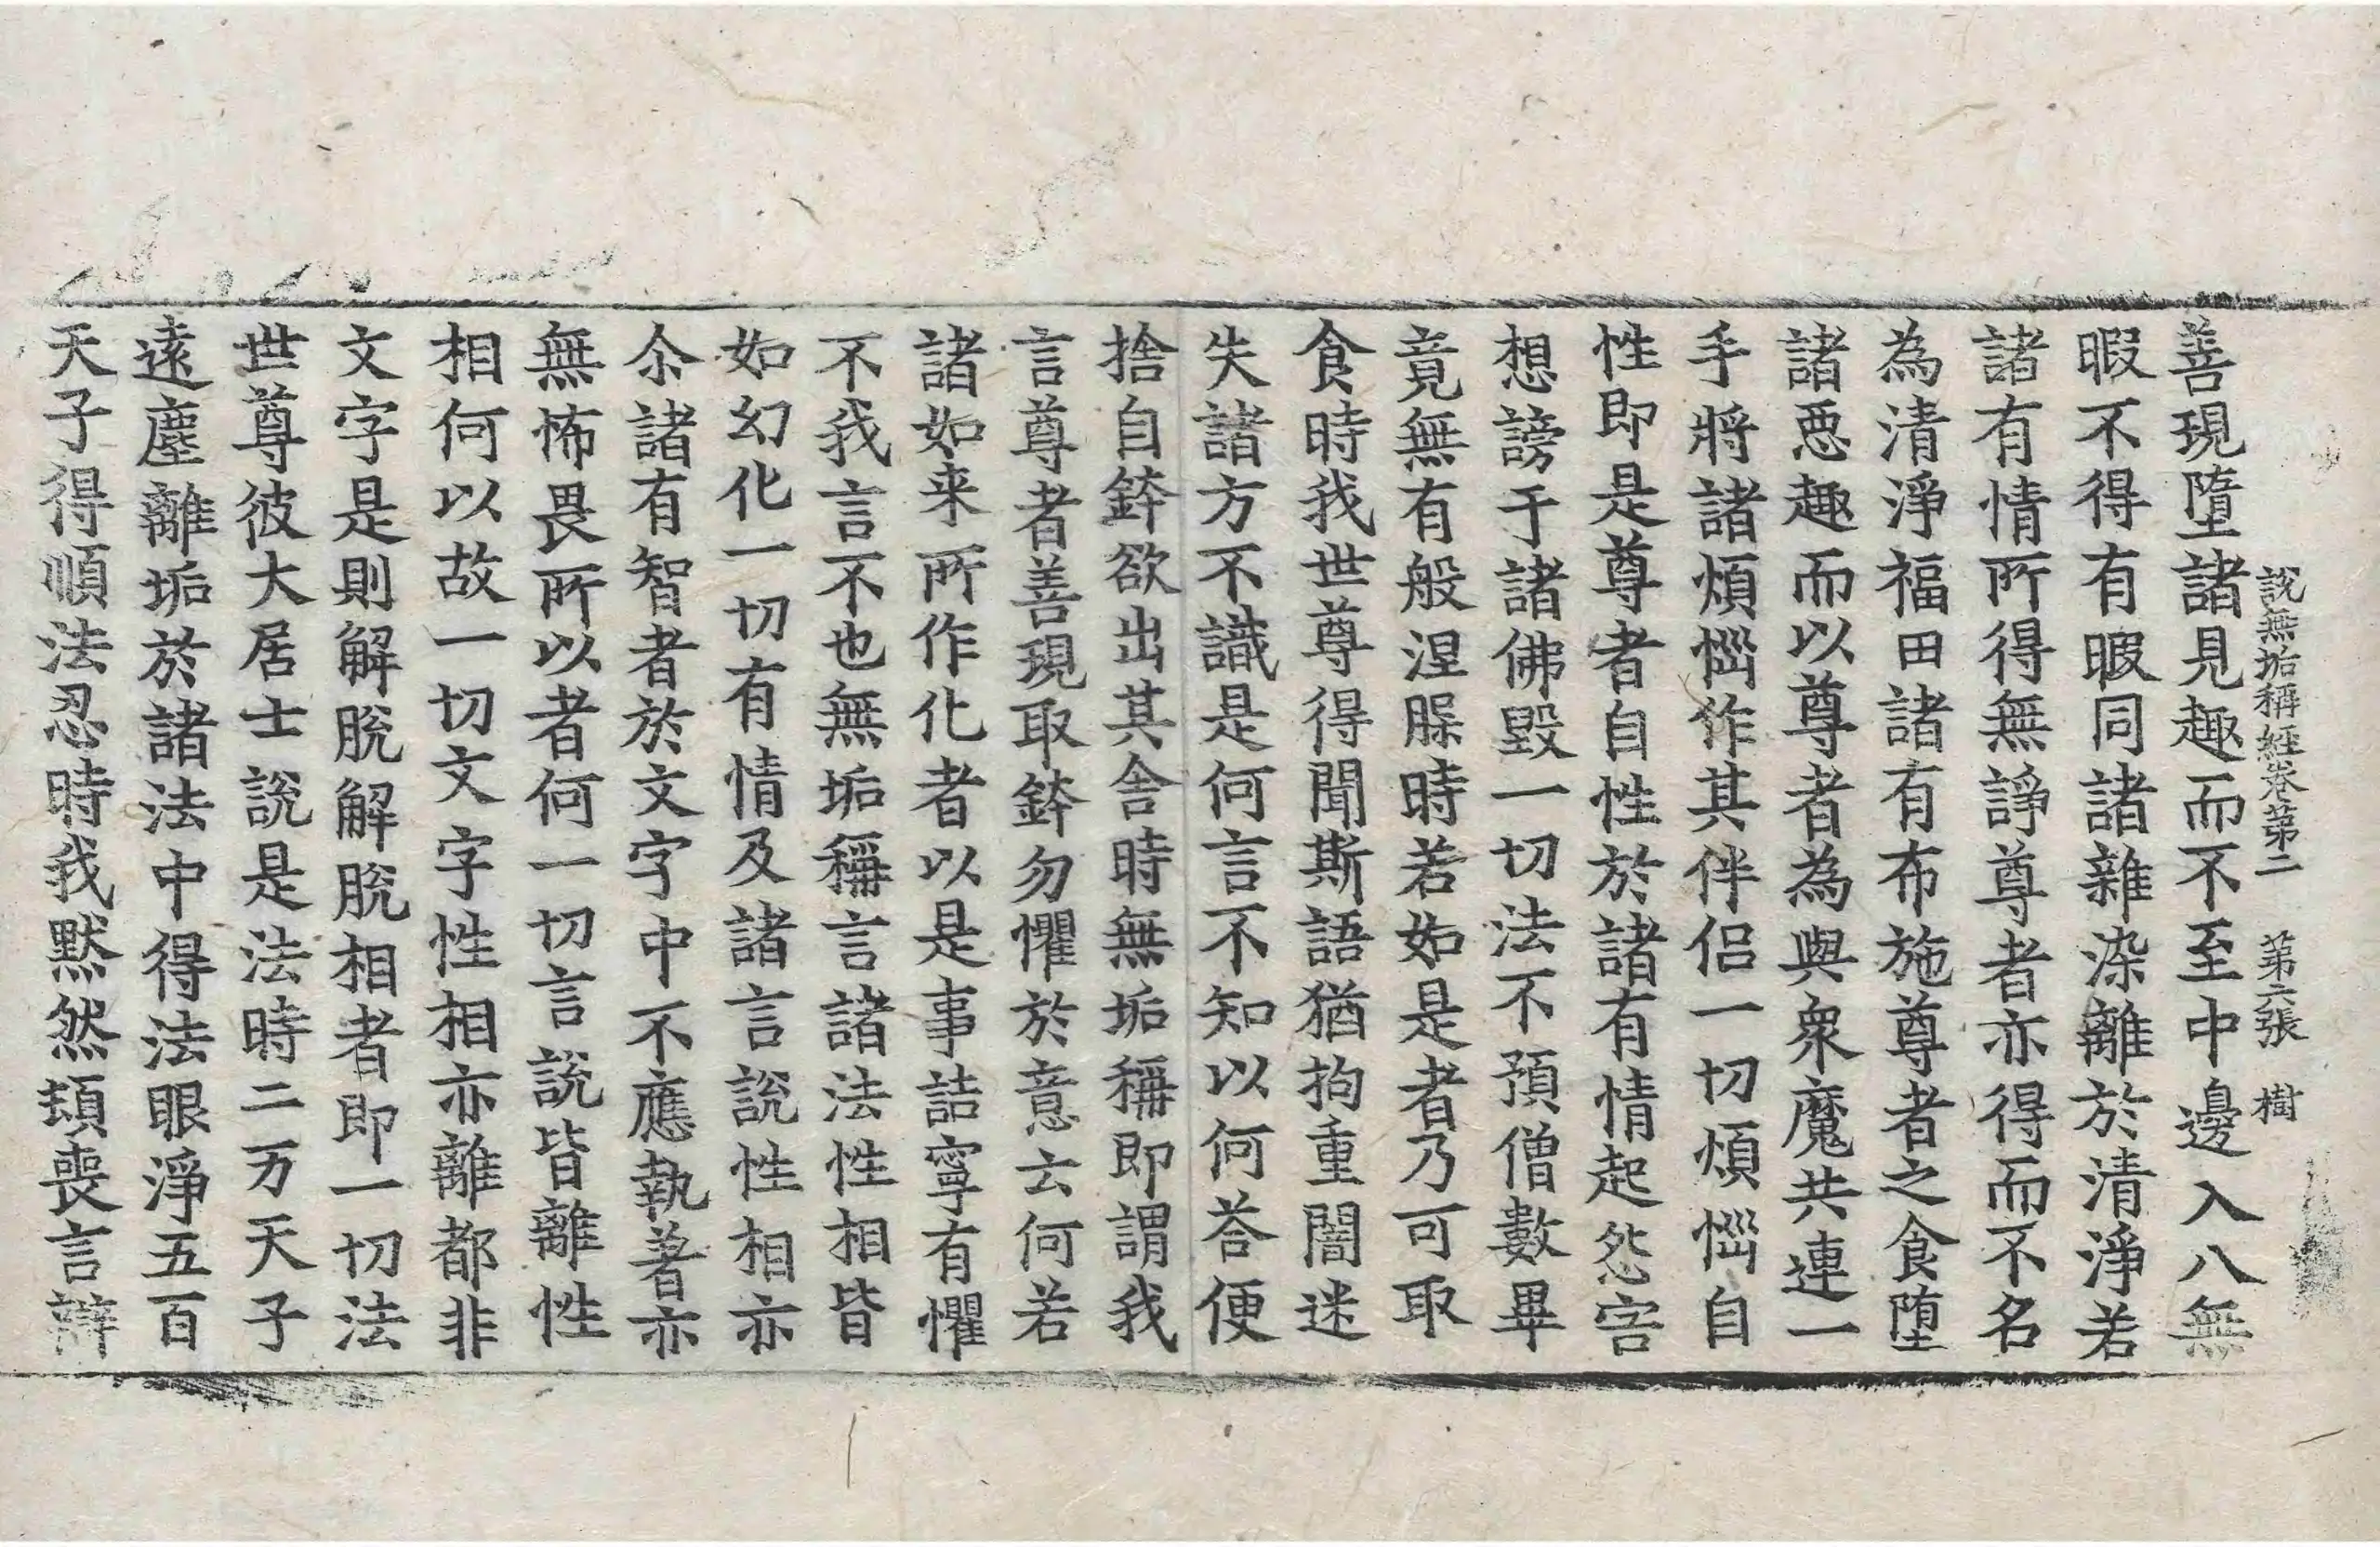 說無垢稱經卷第二 第六張 樹
善現墮諸見趣而不至中邊入八無
暇不得有暇同諸雜染離於清淨若
諸有情所得無諍尊者亦得而不名
為清淨福田諸有布施尊者之食墮
諸惡趣而以尊者為與衆魔共連一
手將諸煩惱作其伴侣一切煩惱自
性即是尊者自性於諸有情起怨害
想謗于諸佛毀一切法不預僧數畢
竟無有般涅槃時若如是者乃可取
食時我世尊得聞斯語猶拘重闇迷
失諸方不識是何言不知以何荅便
捨自鉢欲出其舍時無垢稱即謂我
言尊者善現取鉢勿懼於意云何若
諸如来所作化者以是事詰寧有懼
不我言不也無垢稱言諸法性相皆
如幻化一切有情及諸言說性相亦
尒諸有智者於文字中不應執著亦
無怖畏所以者何一切言說皆離性
相何以故一切文字性相亦離都非
文字是則解脫解脫相者即一切法
世尊彼大居士說是法時二万天子
遠塵離垢於諸法中得法眼淨五百
天子得順法忍時我默然頓喪言辯